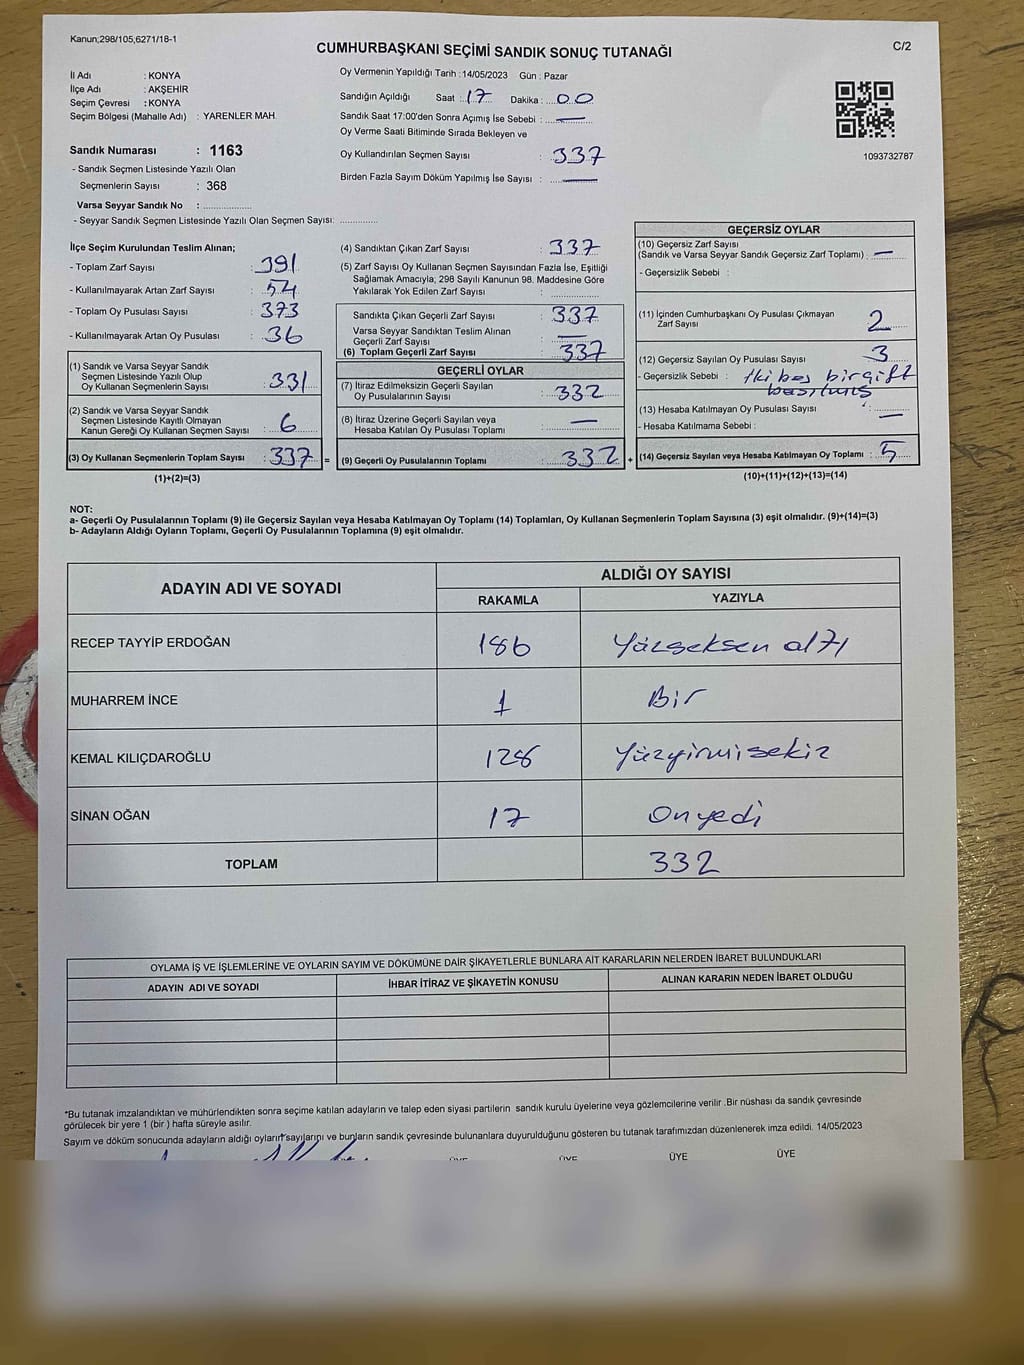 Kanun;298/105,6271/18-1
CUMHURBAŞKANI SEÇİMİ SANDIK SONUÇ TUTANAĞI
C/2
İl Adı : KONYA
İlçe Adı : AKŞEHİR
Seçim Çevresi : KONYA
Seçim Bölgesi (Mahalle Adı) : YARENLER MAH.
Sandık Numarası : 1163
- Sandık Seçmen Listesinde Yazılı Olan
Seçmenlerin Sayısı : 368
Varsa Seyyar Sandık No :
- Seyyar Sandık Seçmen Listesinde Yazılı Olan Seçmen Sayısı:
Oy Vermenin Yapıldığı Tarih : 14/05/2023 Gün : Pazar
Sandığın Açıldığı Saat : 17 Dakika : 00
Sandık Saat 17:00'den Sonra Açımış İse Sebebi : —
Oy Verme Saati Bitiminde Sırada Bekleyen ve
Oy Kullandırılan Seçmen Sayısı : 337
Birden Fazla Sayım Döküm Yapılmış İse Sayısı : —
1093732787
İlçe Seçim Kurulundan Teslim Alınan;
- Toplam Zarf Sayısı : 391
- Kullanılmayarak Artan Zarf Sayısı : 54
- Toplam Oy Pusulası Sayısı : 373
- Kullanılmayarak Artan Oy Pusulası : 36
(1) Sandık ve Varsa Seyyar Sandık
Seçmen Listesinde Yazılı Olup
Oy Kullanan Seçmenlerin Sayısı : 331
(2) Sandık ve Varsa Seyyar Sandık
Seçmen Listesinde Kayıtlı Olmayan
Kanun Gereği Oy Kullanan Seçmen Sayısı : 6
(3) Oy Kullanan Seçmenlerin Toplam Sayısı : 337 =
(1)+(2)=(3)
(4) Sandıktan Çıkan Zarf Sayısı : 337
(5) Zarf Sayısı Oy Kullanan Seçmen Sayısından Fazla İse, Eşitliği
Sağlamak Amacıyla; 298 Sayılı Kanunun 98. Maddesine Göre
Yakılarak Yok Edilen Zarf Sayısı :
Sandıkta Çıkan Geçerli Zarf Sayısı : 337
Varsa Seyyar Sandıktan Teslim Alınan
Geçerli Zarf Sayısı : —
(6) Toplam Geçerli Zarf Sayısı : 337
GEÇERLİ OYLAR
(7) İtiraz Edilmeksizin Geçerli Sayılan
Oy Pusulalarının Sayısı : 332
(8) İtiraz Üzerine Geçerli Sayılan veya
Hesaba Katılan Oy Pusulası Toplamı : —
(9) Geçerli Oy Pusulalarının Toplamı : 332 +
GEÇERSİZ OYLAR
(10) Geçersiz Zarf Sayısı
(Sandık ve Varsa Seyyar Sandık Geçersiz Zarf Toplamı) : —
- Geçersizlik Sebebi :
(11) İçinden Cumhurbaşkanı Oy Pusulası Çıkmayan
Zarf Sayısı : 2
(12) Geçersiz Sayılan Oy Pusulası Sayısı : 3
- Geçersizlik Sebebi : İki boş bir çift
basılmış
(13) Hesaba Katılmayan Oy Pusulası Sayısı : —
- Hesaba Katılmama Sebebi :
(14) Geçersiz Sayılan veya Hesaba Katılmayan Oy Toplamı : 5
(10)+(11)+(12)+(13)=(14)
NOT:
a- Geçerli Oy Pusulalarının Toplamı (9) ile Geçersiz Sayılan veya Hesaba Katılmayan Oy Toplamı (14) Toplamları, Oy Kullanan Seçmenlerin Toplam Sayısına (3) eşit olmalıdır. (9)+(14)=(3)
b- Adayların Aldığı Oyların Toplamı, Geçerli Oy Pusulalarının Toplamına (9) eşit olmalıdır.
ADAYIN ADI VE SOYADI
ALDIĞI OY SAYISI
RAKAMLA YAZIYLA
RECEP TAYYİP ERDOĞAN 186 Yüzseksen altı
MUHARREM İNCE 1 Bir
KEMAL KILIÇDAROĞLU 128 Yüzyirmisekiz
SİNAN OĞAN 17 Onyedi
TOPLAM 332
OYLAMA İŞ VE İŞLEMLERİNE VE OYLARIN SAYIM VE DÖKÜMÜNE DAİR ŞİKAYETLERLE BUNLARA AİT KARARLARIN NELERDEN İBARET BULUNDUKLARI
ADAYIN ADI VE SOYADI İHBAR İTİRAZ VE ŞİKAYETİN KONUSU ALINAN KARARIN NEDEN İBARET OLDUĞU
*Bu tutanak imzalandıktan ve mühürlendikten sonra seçime katılan adayların ve talep eden siyasi partilerin sandık kurulu üyelerine veya gözlemcilerine verilir .Bir nüshası da sandık çevresinde
görülecek bir yere 1 (bir ) hafta süreyle asılır.
Sayım ve döküm sonucunda adayların aldığı oyların sayılarını ve bunların sandık çevresinde bulunanlara duyurulduğunu gösteren bu tutanak tarafımızdan düzenlenerek imza edildi. 14/05/2023
ÜYE ÜYE ÜYE ÜYE